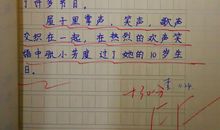 了许多节目。
屋子里掌声,笑声,歌声
交织在一起,在热烈的欢声笑
语中张小芳度过了她的10岁生
日。